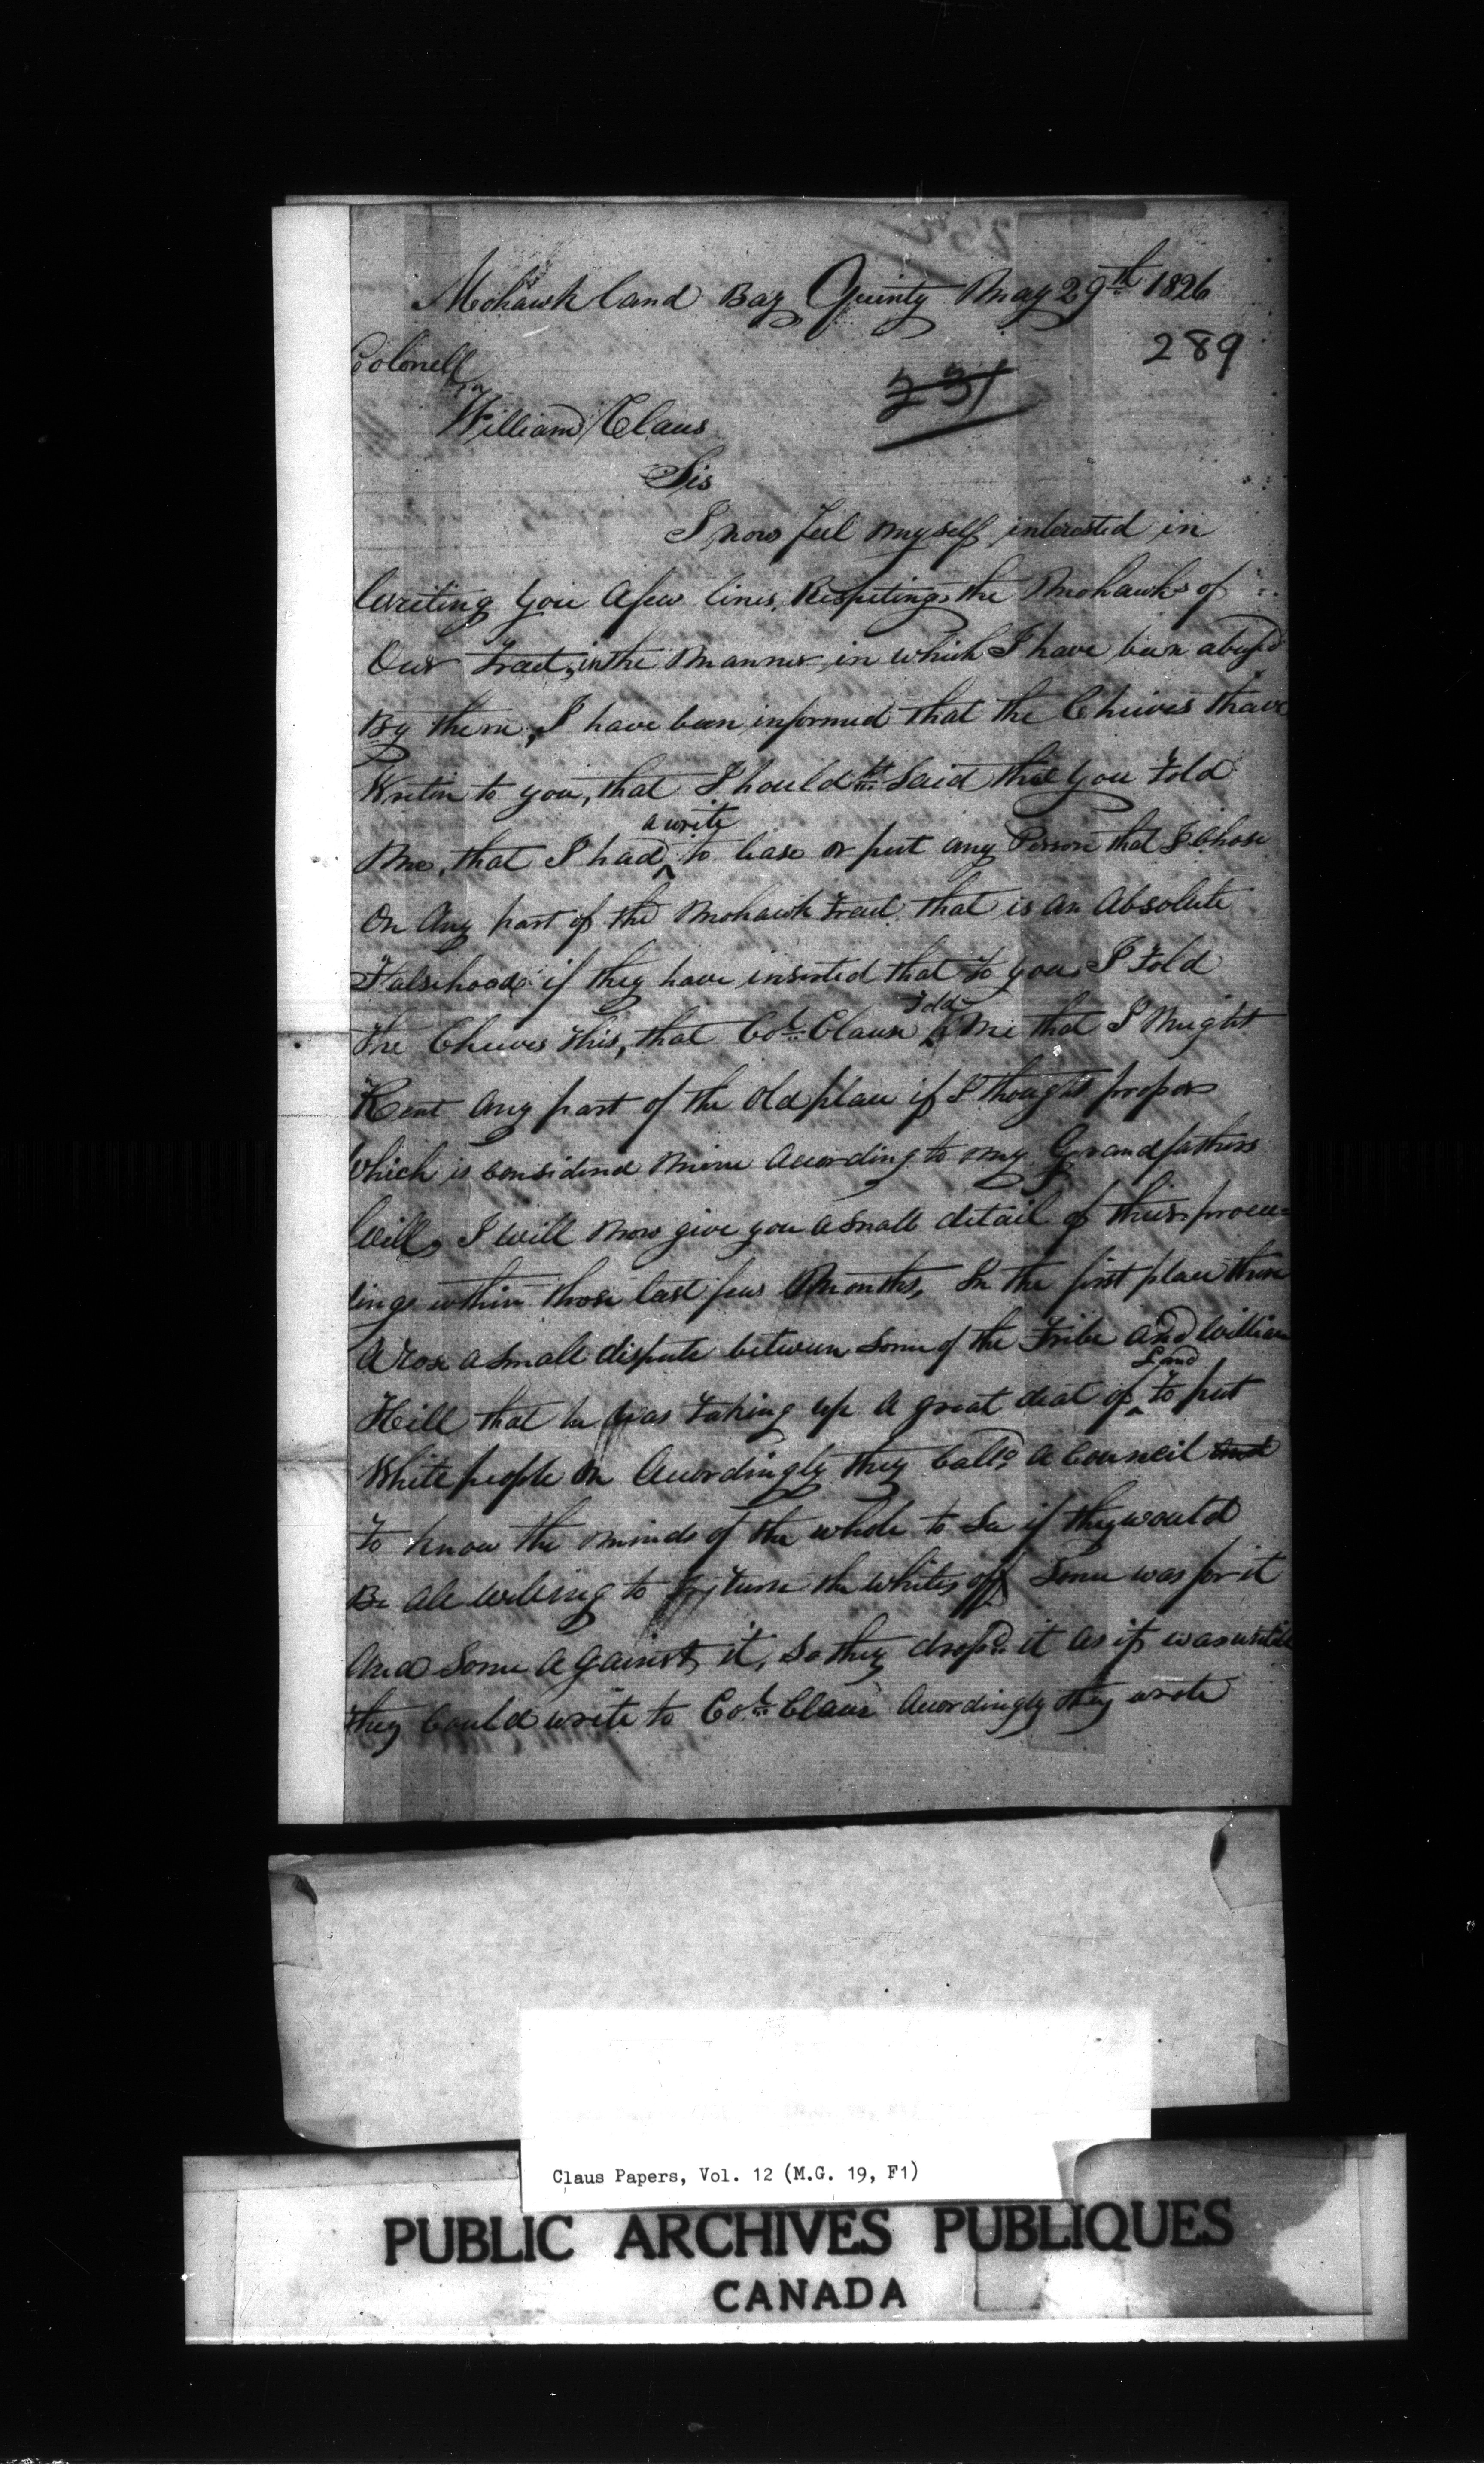 Mohawk land Bay Quinty May 29th 1826
289
Colonell
231
William Claus
Sir
I now feel myself interested in
writing you a few lines Respeting the Mohawks of
Our tract, in the Manner in which I have been abused
By them, I have been informed that the Chieves have
Writin to you, that I should Said that you told
a write
Me, that I had ^ to lease or put any Person that I Chose
On Any part of the Mohawk tract that is an Absolute
Falsehood if they have inserted that to you I told
told
The Chieves this, that Col. Claus ^ Me that I Might
Rent any part of the old place if I thought proper
Which is considered mine According to my Grandfathers
Will, I will now give you a small detail of their procee=
dings within those last few Months, In the first place there
Arose a small dispute between some of the Tribe and William
Land
Hill that he was taking up a great deal of ^ to put
White people on Acordingly they Calld a Council and
To know the minds of the whole to See if they would
Be all willing to turn the whites off Some was for it
And Some Against it, So they dropd it as it was untill
they Could write to Col. Claus Acordingly they wrote
Claus Papers, Vol. 12 (M.G. 19, F1)
PUBLIC ARCHIVES PUBLIQUES
CANADA